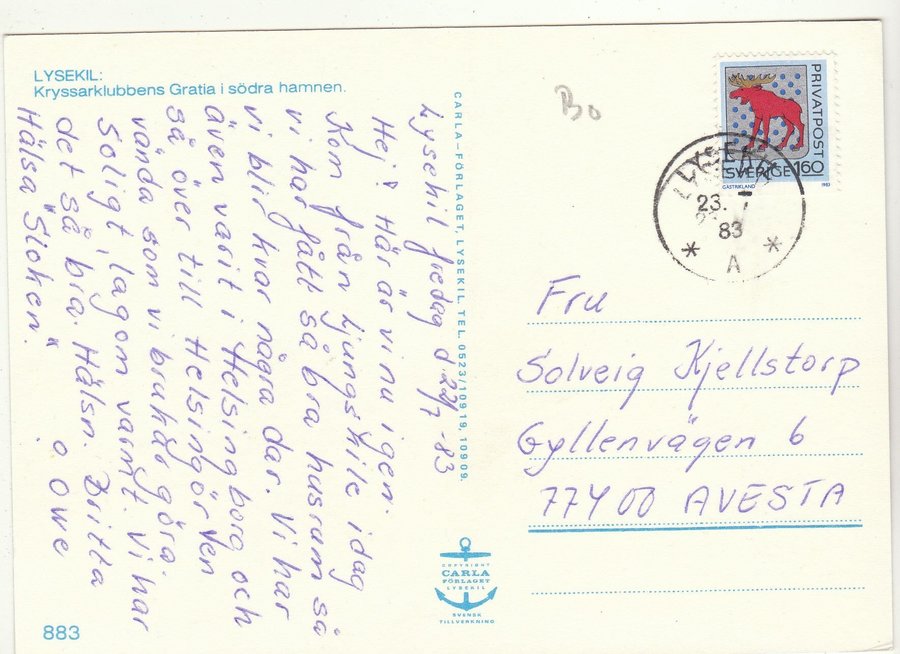 LYSEKIL:
Kryssarklubbens Gratia i södra hamnen.
Lysekil fredag d 22/7 -83
Hej! Här är vi nu igen.
Kom från Ljungskile idag
vi har fått så bra husrum så
vi blir kvar några dar. Vi har
även varit i Helsingborg och
så över till Helsingör ven
vända som vi brukar göra.
Soligt, lagom varmt. Vi har
det så bra. Hälsn. Britta
Hälsa "Sloken". o Owe
CARLA-FÖRLAGET, LYSEKIL. TEL. 0523/10919, 10909.
Bo
PRIVATPOST
SVERIGE 160
GÄSTRIKLAND 1983
LYSEKIL
23. 7
83
* A *
Fru
Solveig Kjellstorp
Gyllenvägen 6
77400 AVESTA
COPYRIGHT
CARLA
FÖRLAGET
LYSEKIL
SVENSK
TILLVERKNING
883